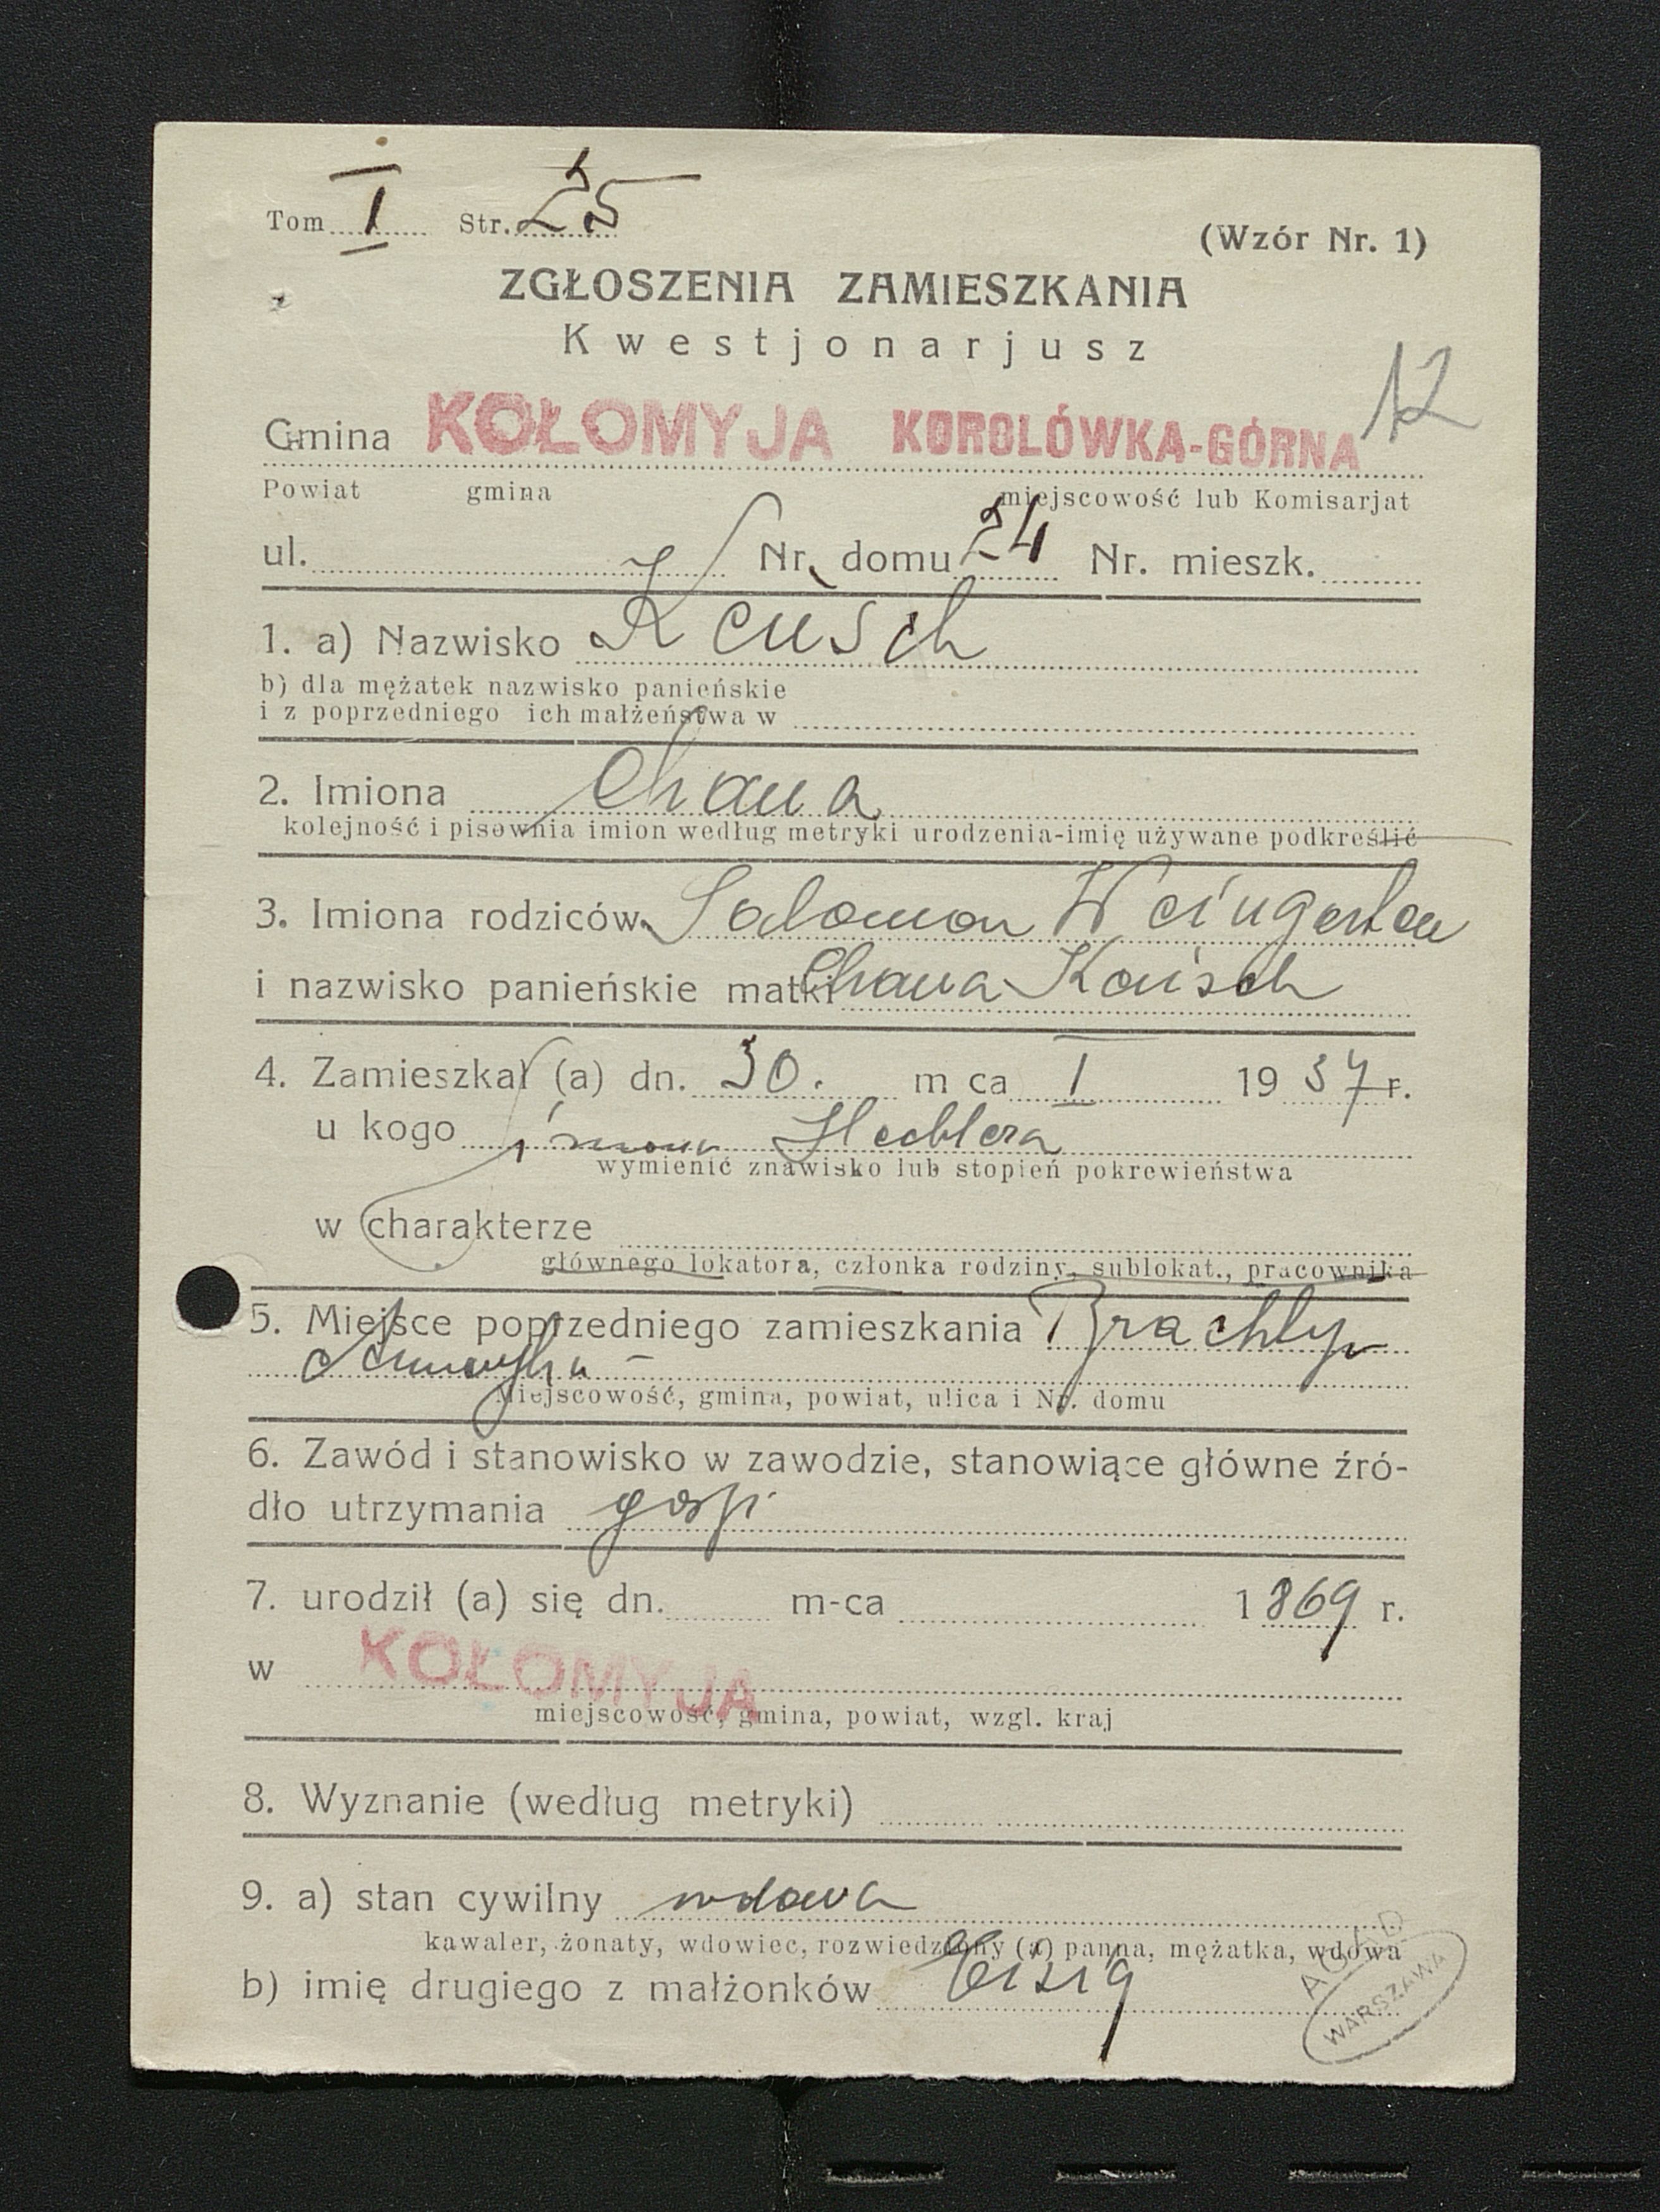 Tom I Str. 25
(Wzór Nr. 1)
ZGŁOSZENIA ZAMIESZKANIA
Kwestjonarjusz
12
Gmina KOŁOMYJA KOROLÓWKA-GÓRNA
Powiat gmina miejscowość lub Komisarjat
ul. Nr. domu 24 Nr. mieszk.
1. a) Nazwisko Keusch
b) dla mężatek nazwisko panieńskie
i z poprzedniego ich małżeństwa w
2. Imiona Chana
kolejność i pisownia imion według metryki urodzenia-imię używane podkreślić
3. Imiona rodziców Salomon Weingarten
i nazwisko panieńskie matki Chana Kaisch
4. Zamieszkał (a) dn. 30. m ca I 1937 r.
u kogo Hechlera
wymienić znawisko lub stopień pokrewieństwa
w charakterze
głównego lokatora, członka rodziny, sublokat., pracownika
5. Miejsce poprzedniego zamieszkania
Miejscowość, gmina, powiat, ulica i Nr. domu
6. Zawód i stanowisko w zawodzie, stanowiące główne źró-
dło utrzymania gosp.
7. urodził (a) się dn. m-ca 1869 r.
w KOŁOMYJA
miejscowość, gmina, powiat, wzgl. kraj
8. Wyznanie (według metryki)
9. a) stan cywilny wdowa
kawaler, żonaty, wdowiec, rozwiedziony (a) panna, mężatka, wdowa
b) imię drugiego z małżonków Eisig
AGAD
WARSZAWA